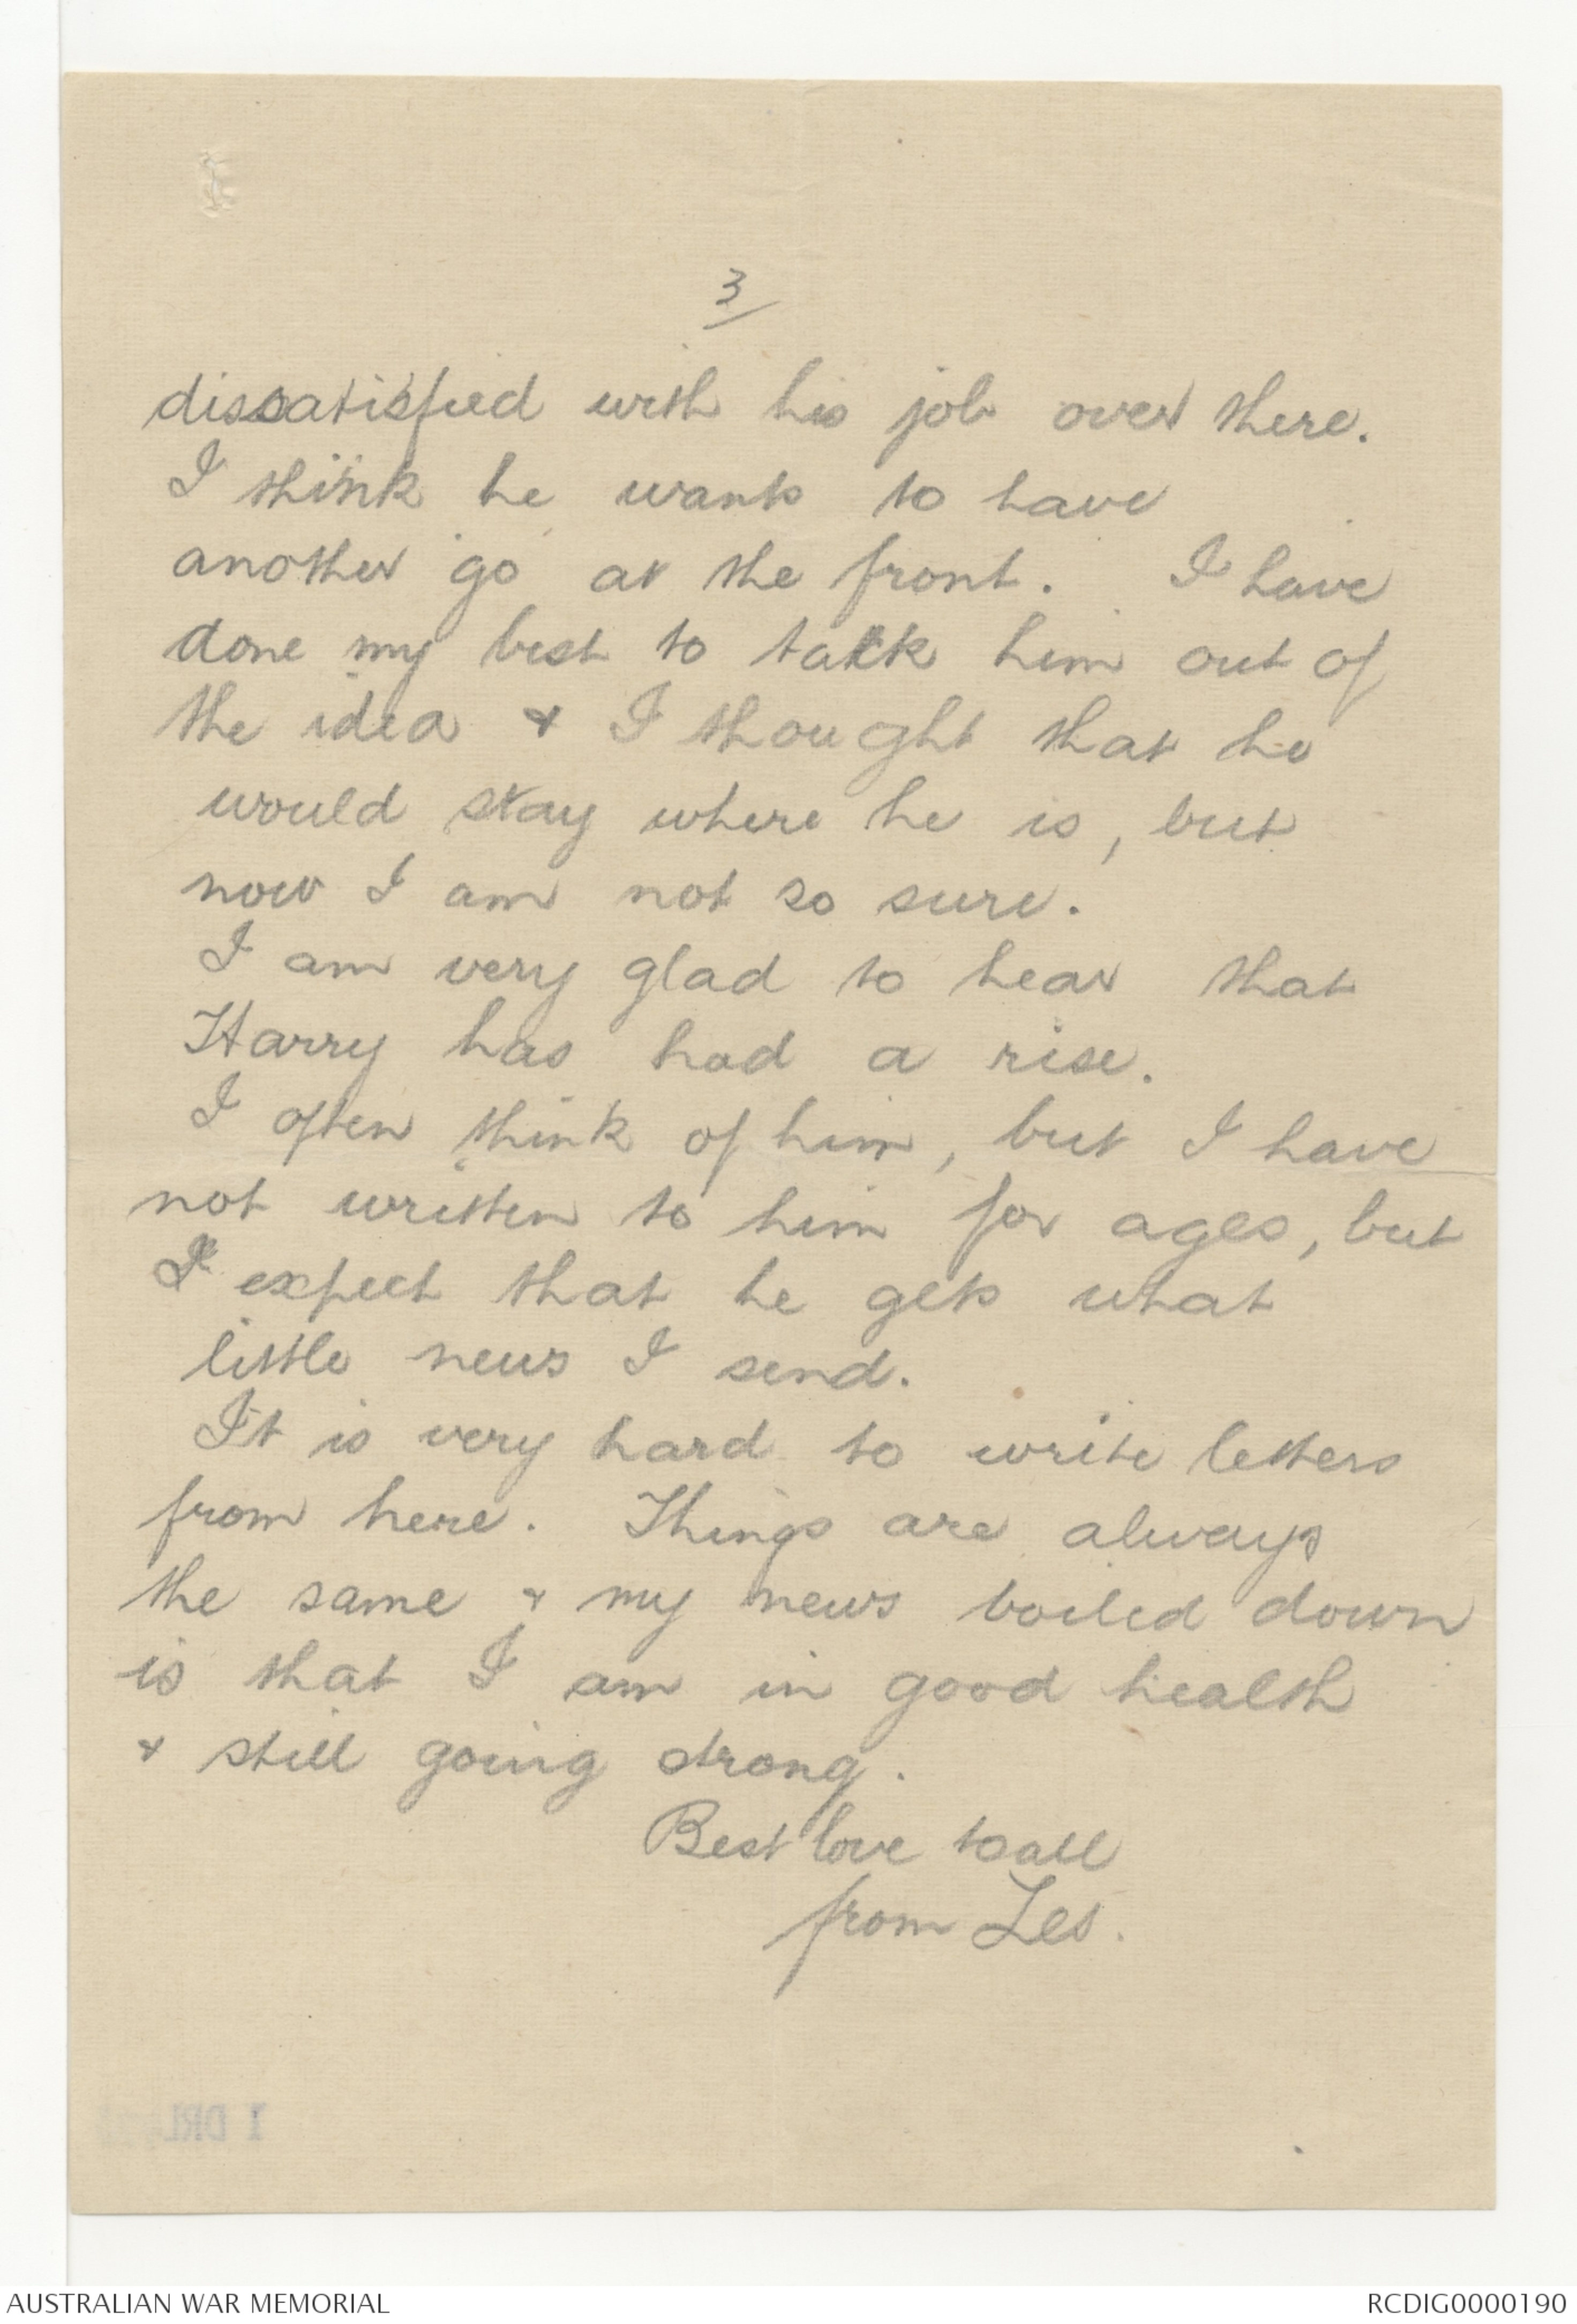 3
dissatisfied with his job over there.
I think he wants to have
another 'go' at the front. I have
done my best to talk him out of
the idea & I thought that he
would stay where he is, but
now I am not so sure.
I am very glad to hear that
Harry has had a rise.
I often think of him, but I have
not written to him for ages, but
I expect that he gets what
little news I send.
It is very hard to write letters
from here. Things are always
the same & my news boiled down
is that I am in good health
& still going strong.
Best love to all
from Les.
1 DRL
AUSTRALIAN WAR MEMORIAL
RCDIG0000190